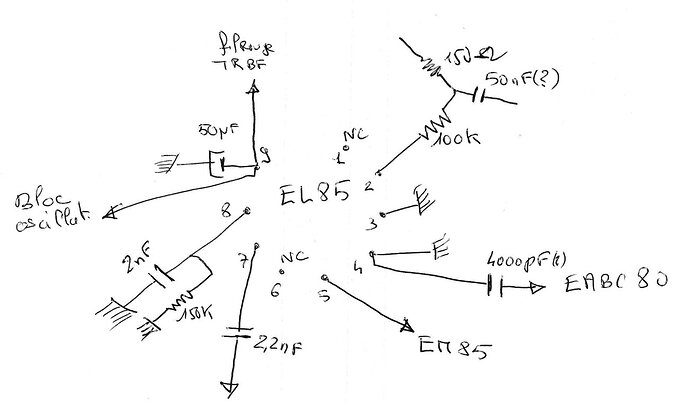 fil Rouge
TRBF
150Ω
50nF(?)
50µF
NC
100K
9
1
2
EL85
Bloc
oscillat.
8
3
2nF
7
NC
4
4000pF(?)
EABC80
6
5
150K
2,2nF
EM85